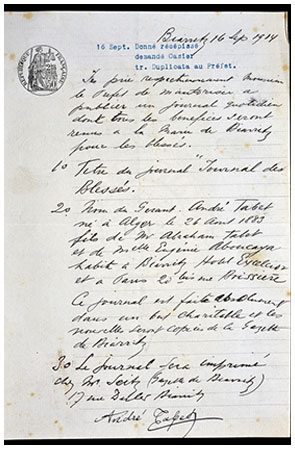 Biarritz 16 Sep. 1914
16 Sept. Donné récépissé
demandé Casier
tr. Duplicata au Préfet.
RÉPUBLIQUE FRANÇAISE
Je prie respectueusement Monsieur
le Préfet de m'autoriser à
publier un journal quotidien
dont tous les bénéfices seront
remis à la Mairie de Biarritz
pour les blessés.
1o Titre du journal "Journal des
Blessés.
2o Nom du Gérant. André Tabet
né à Alger le 26 Aout 1883
fils de Mr Abraham Tabet
et de Melle Eugénie Aboucaya
habite à Biarritz Hotel
et à Paris 20 bis rue Boissière
Ce journal est fait absolument
dans un but charitable et les
nouvelles seront copiées de la Gazette
de Biarritz
3o Le Journal sera imprimé
chez Mr Seitz (Gazette de Biarritz)
17 rue Biarritz
André Tabet